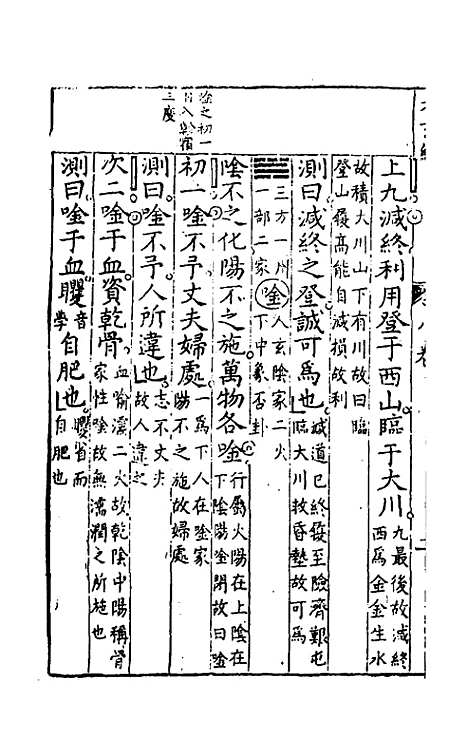 上九減終利用登于西山臨于大川九最後故減終西為金金生水
故積大川山下有川故曰臨
登山履高能自減損故利
測曰減終之登誠可為也減道已終復至險濟艱也臨大川救昏墊故可為
三方一州一部二家
唫人玄陰家二火下中象否卦
陰不之化陽不之施萬物各唫行屬火陽在上陰在下陰陽唫閉故曰唫
唫之初一日入
宿
三度
初一唫不予丈夫婦處一為下人在唫家陽不之施故婦處
測曰唫不予人所違也志不丈夫故人違之
次二唫于血資乾骨血喻濡二火故乾陰中陽稱骨家性唫故無濡潤之所施也
測曰唫于血臞音學自肥也臞省而自肥也